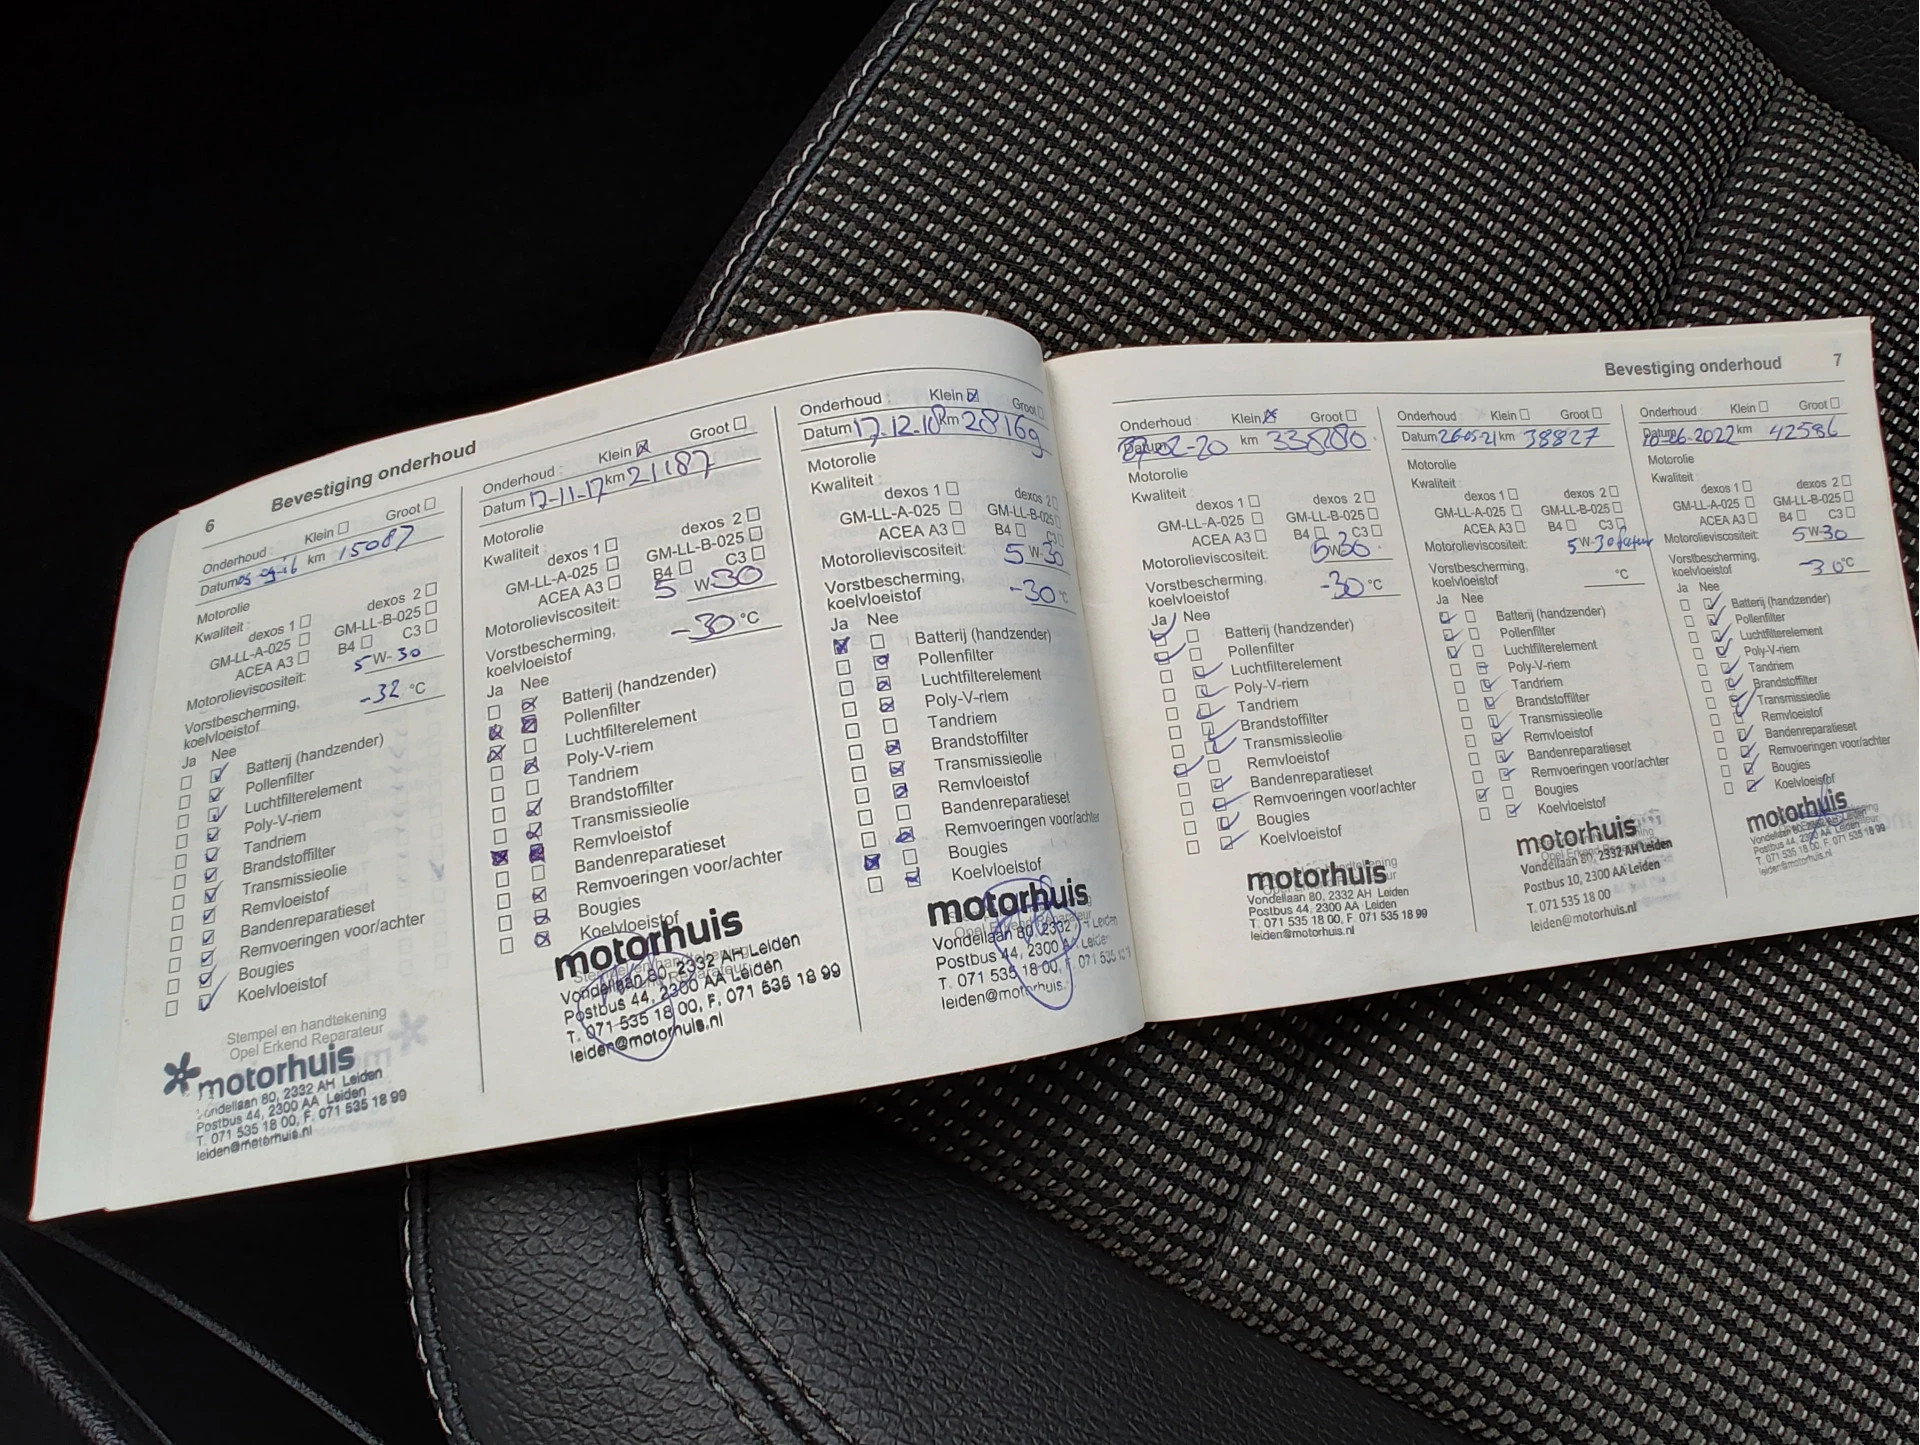 6 Bevestiging onderhoud
Onderhoud : Klein Groot
Datum 05-09-16 km 15087
Motorolie
Kwaliteit : dexos 1 dexos 2
GM-LL-A-025 GM-LL-B-025
ACEA A3 B4 C3
Motorolieviscositeit: 5 W-30
Vorstbescherming,
koelvloeistof -32 °C
Ja Nee
Batterij (handzender)
Pollenfilter
Luchtfilterelement
Poly-V-riem
Tandriem
Brandstoffilter
Transmissieolie
Remvloeistof
Bandenreparatieset
Remvoeringen voor/achter
Bougies
Koelvloeistof
Stempel en handtekening
Opel Erkend Reparateur
motorhuis
Vondellaan 80, 2332 AH Leiden
Postbus 44, 2300 AA Leiden
T. 071 535 18 00, F. 071 535 18 99
leiden@motorhuis.nl
Onderhoud : Klein Groot
Datum 17-11-17 km 21187
Motorolie
Kwaliteit : dexos 1 dexos 2
GM-LL-A-025 GM-LL-B-025
ACEA A3 B4 C3
Motorolieviscositeit: 5 W-30
Vorstbescherming,
koelvloeistof -30 °C
Ja Nee
Batterij (handzender)
Pollenfilter
Luchtfilterelement
Poly-V-riem
Tandriem
Brandstoffilter
Transmissieolie
Remvloeistof
Bandenreparatieset
Remvoeringen voor/achter
Bougies
Koelvloeistof
motorhuis
Vondellaan 80, 2332 AH Leiden
Postbus 44, 2300 AA Leiden
T. 071 535 18 00, F. 071 535 18 99
leiden@motorhuis.nl
Onderhoud : Klein Groot
Datum 17-12-18 km 28169
Motorolie
Kwaliteit : dexos 1 dexos 2
GM-LL-A-025 GM-LL-B-025
ACEA A3 B4 C3
Motorolieviscositeit: 5 W-30
Vorstbescherming,
koelvloeistof -30 °C
Ja Nee
Batterij (handzender)
Pollenfilter
Luchtfilterelement
Poly-V-riem
Tandriem
Brandstoffilter
Transmissieolie
Remvloeistof
Bandenreparatieset
Remvoeringen voor/achter
Bougies
Koelvloeistof
motorhuis
Vondellaan 80, 2332 AH Leiden
Postbus 44, 2300 AA Leiden
T. 071 535 18 00, F. 071 535
leiden@motorhuis.
Bevestiging onderhoud 7
Onderhoud : Klein Groot
Datum 02-20 km
Motorolie
Kwaliteit : dexos 1 dexos 2
GM-LL-A-025 GM-LL-B-025
ACEA A3 B4 C3
Motorolieviscositeit: 5W30
Vorstbescherming,
koelvloeistof -30 °C
Ja Nee
Batterij (handzender)
Pollenfilter
Luchtfilterelement
Poly-V-riem
Tandriem
Brandstoffilter
Transmissieolie
Remvloeistof
Bandenreparatieset
Remvoeringen voor/achter
Bougies
Koelvloeistof
motorhuis
Vondellaan 80, 2332 AH Leiden
Postbus 44, 2300 AA Leiden
T. 071 535 18 00, F. 071 535 18 99
leiden@motorhuis.nl
Onderhoud : Klein Groot
Datum 26-05-21 km 38827
Motorolie
Kwaliteit : dexos 1 dexos 2
GM-LL-A-025 GM-LL-B-025
ACEA A3 B4 C3
Motorolieviscositeit: 5 W-30
Vorstbescherming,
koelvloeistof °C
Ja Nee
Batterij (handzender)
Pollenfilter
Luchtfilterelement
Poly-V-riem
Tandriem
Brandstoffilter
Transmissieolie
Remvloeistof
Bandenreparatieset
Remvoeringen voor/achter
Bougies
Koelvloeistof
motorhuis
Vondellaan 80, 2332 AH Leiden
Postbus 10, 2300 AA Leiden
T. 071 535 18 00
leiden@motorhuis.nl
Onderhoud : Klein Groot
Datum 06-2022 km 42586
Motorolie
Kwaliteit : dexos 1 dexos 2
GM-LL-A-025 GM-LL-B-025
ACEA A3 B4 C3
Motorolieviscositeit: 5 W-30
Vorstbescherming,
koelvloeistof -30°C
Ja Nee
Batterij (handzender)
Pollenfilter
Luchtfilterelement
Poly-V-riem
Tandriem
Brandstoffilter
Transmissieolie
Remvloeistof
Bandenreparatieset
Remvoeringen voor/achter
Bougies
Koelvloeistof
motorhuis
Vondellaan 80, 2332 AH Leiden
Postbus 44, 2300 AA Leiden
T. 071 535 18 00, F. 071 535 18 99
leiden@motorhuis.nl